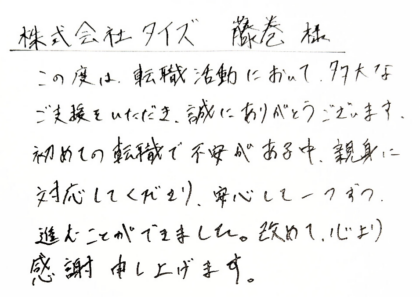 株式会社タイズ 藤巻様
この度は、転職活動において、多大な
ご支援をいただき、誠にありがとうございます。
初めての転職で不安がある中、親身に
対応してくださり、安心して一つずつ
進むことができました。改めて、心より
感謝申し上げます。